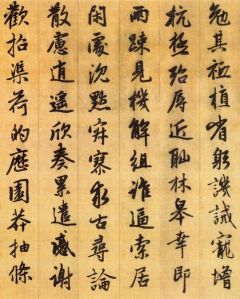 勉其祗植省躬譏誡寵增
抗極殆辱近耻林皋幸即
兩疎見機解組誰逼索居
閑處沉默寂寥求古尋論
散慮逍遙欣奏累遣慼謝
歡招渠荷的歷園莽抽條